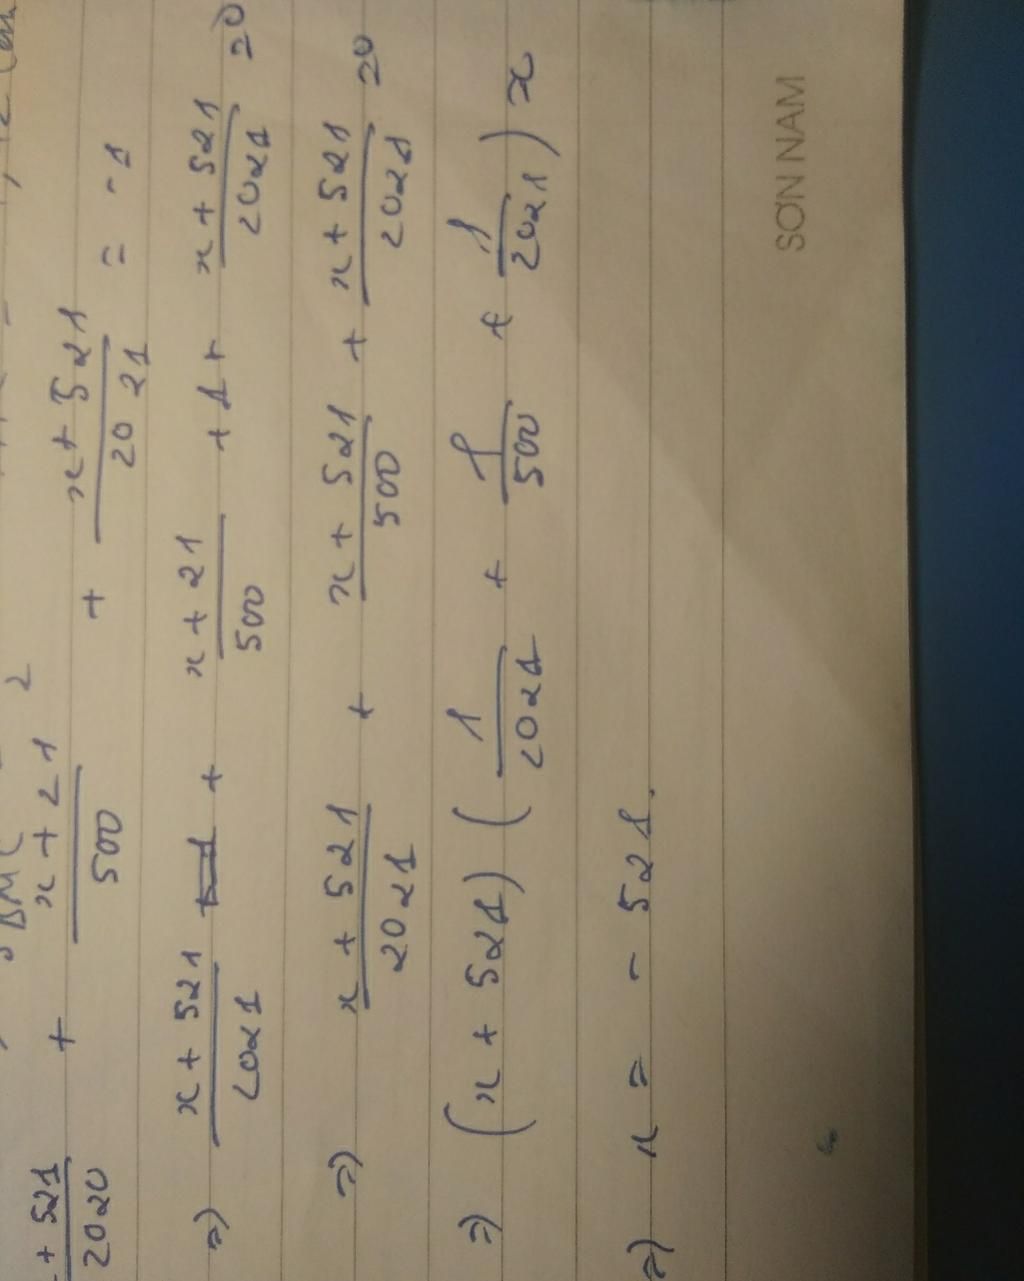 + 521/2020 + x + 21/500 + x + 521/2021 = -1
=) x + 521/2021 + x + 21/500 + 1 + x + 521/2021 = 0
=) x + 521/2021 + x + 521/500 + x + 521/2021 = 0
=) (x + 521) (1/2021 + 1/500 + 1/2021)
=) x = - 521.
SƠN NAM